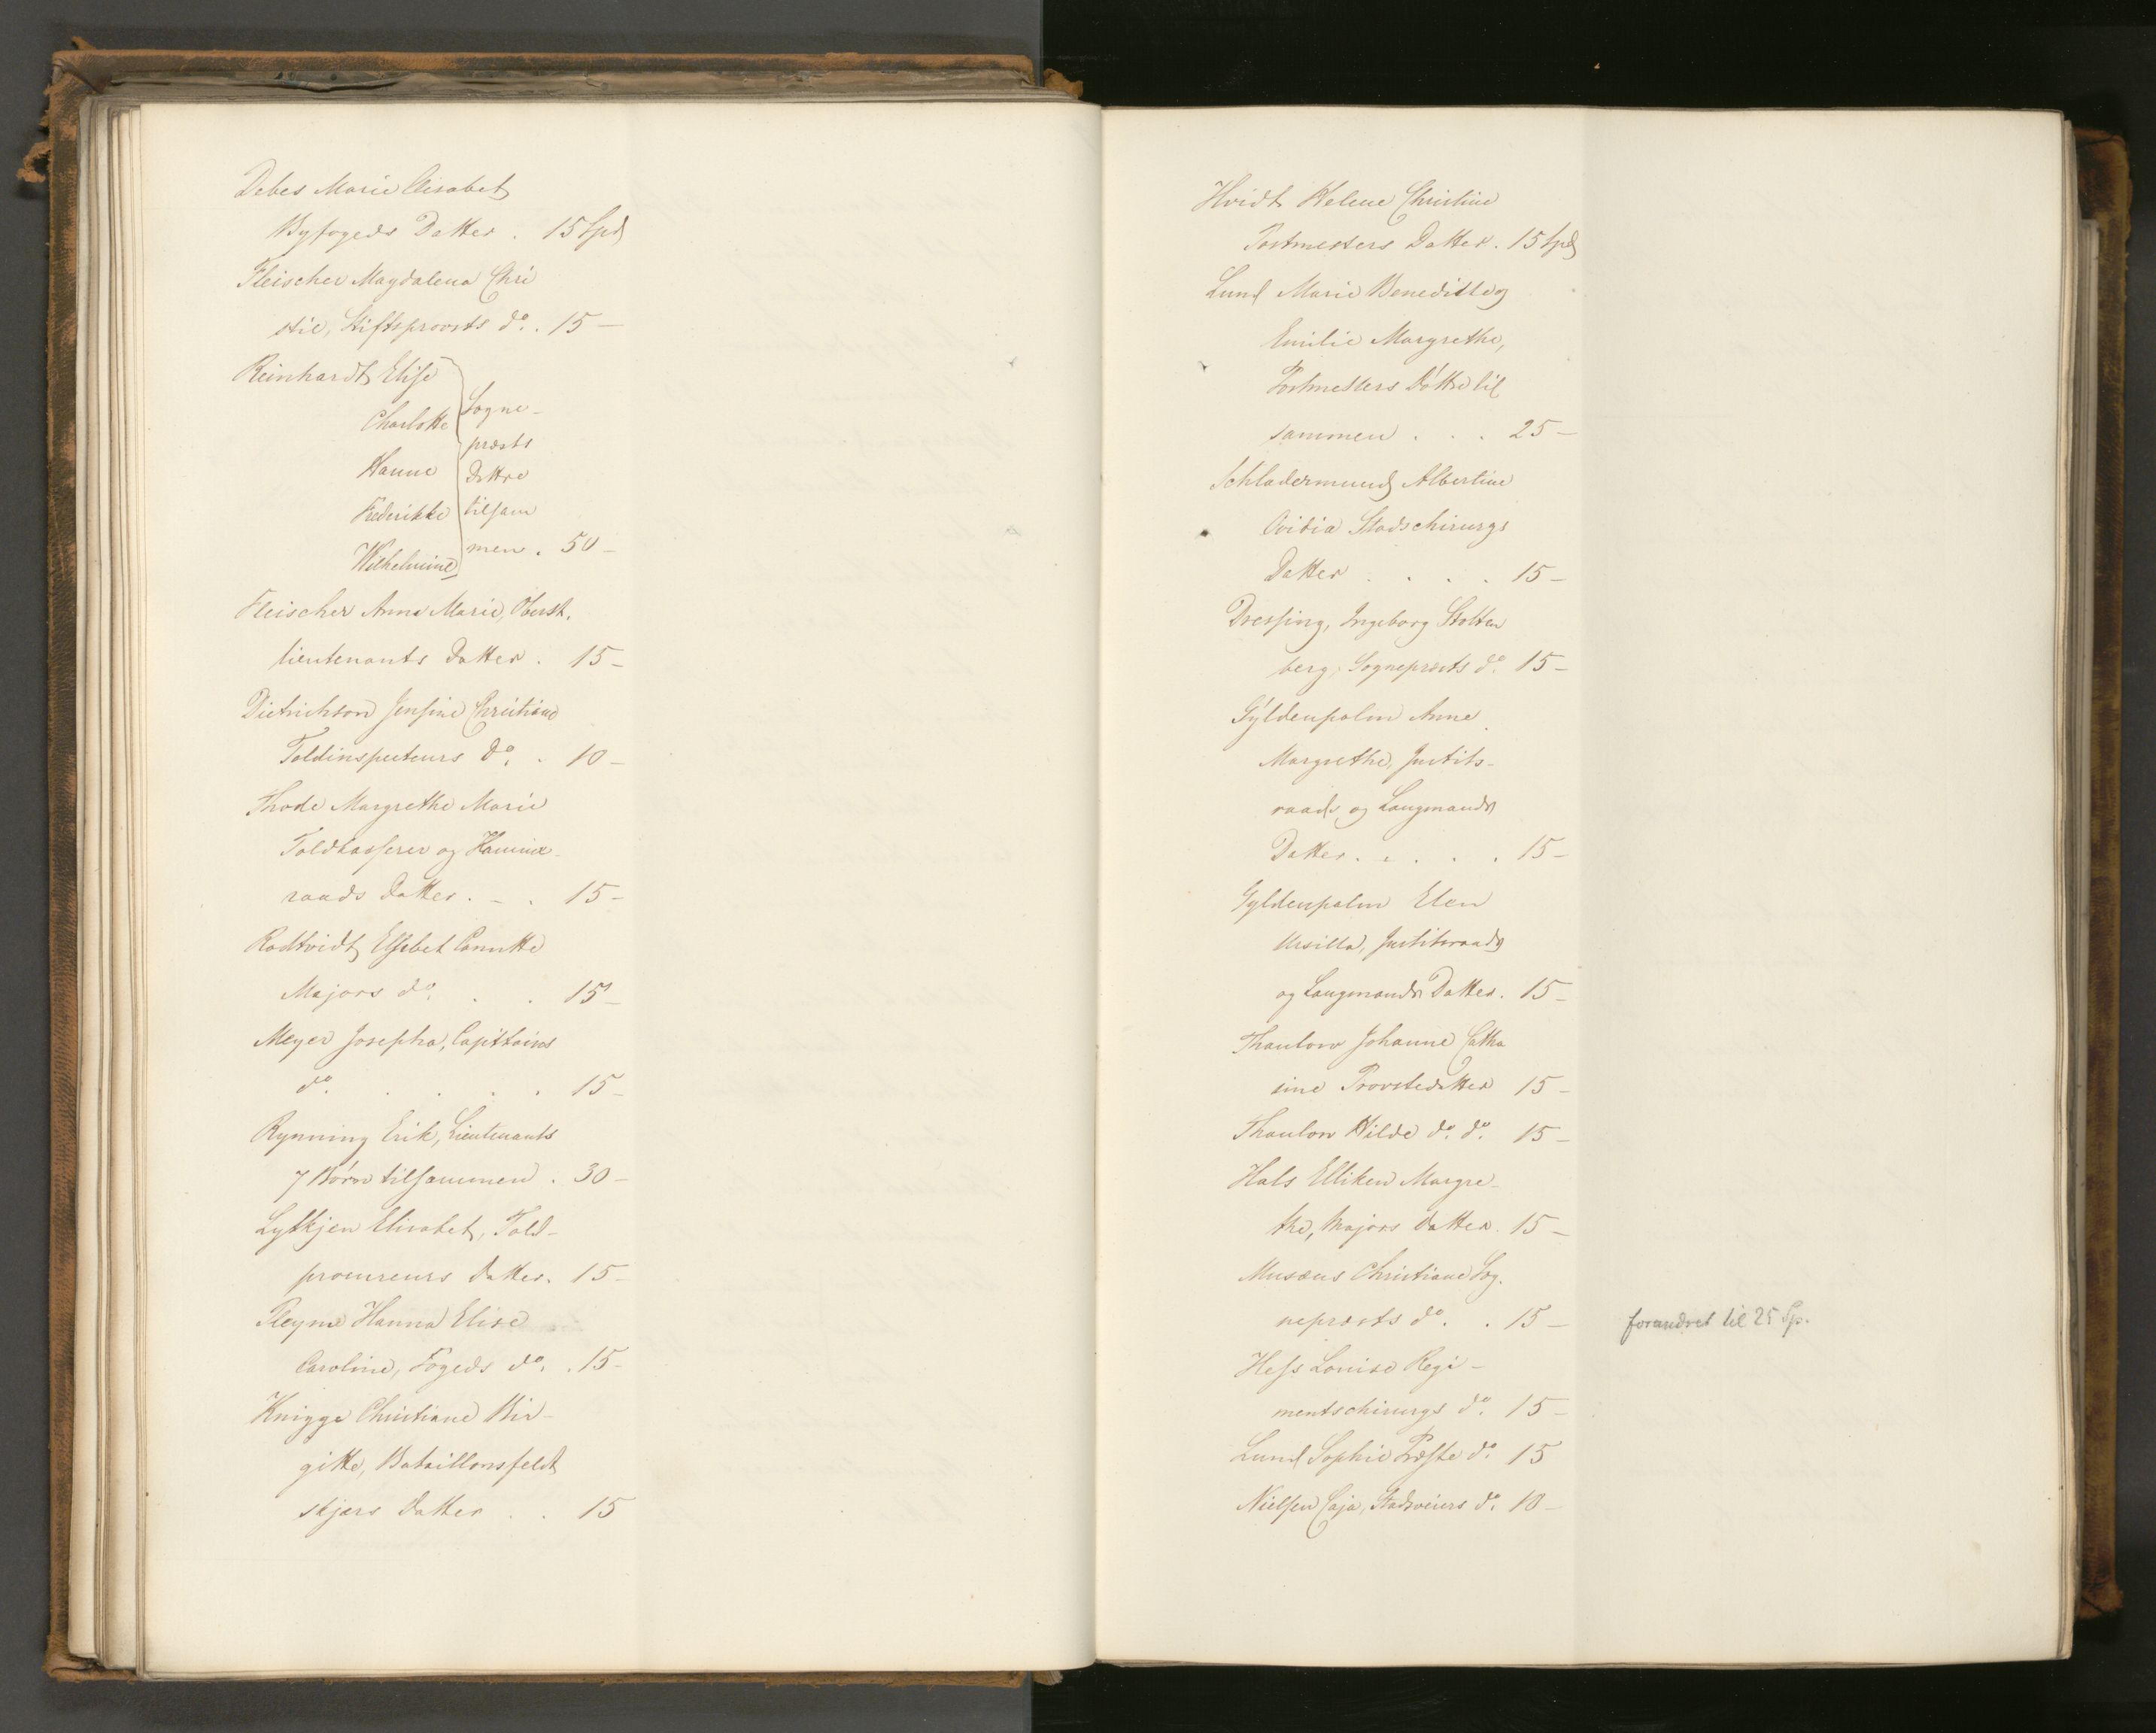 Debes Marie Elisabet
Byfogeds Datter . 15 Spd
Fleischer Magdalena Chri
stie, Stiftsprovsts do. . 15 —
Reinhardt Elise
Charlotte
Hanne
Frederikke
Wilhelmine
Sogne-
præsts
Døttre
tilsam
men . 50 —
Fleischer Anne Marie, Oberst.
lieutenants Datter . 15 —
Dietrichson Jensine Christiane
Toldinspecteurs do. . 10 —
Thode Margrethe Marie
Toldkasserer og Kammer-
raads Datter . - . 15 —
Rodtvidt Elsebet Canutte
Majors do. . . 15 —
Meyer Josepha, Capitains
do. . . . . 15 —
Rynning Erik, Lieutenants
7 Børn tilsammen . 30 —
Lytkjen Elisabet, Told-
procureurs Datter. 15 —
Pleym Hanna Elise
Caroline, Fogeds do. . 15 —
Knigge Christiane Bir-
gitte, Bataillonsfeldt
skjærs Datter . . 15
Hvidt Helene Christine
Postmesters Datter . 15 Spd
Lund Marie Benedicte og
Emilie Margrethe,
Postmesters Døttre til
sammen . . . 25 —
Schladermund Albertine
Ovidia Stadschirurgs
Datter . . . . 15 —
Dressing, Ingeborg Stolten
berg, Sognepræsts do. 15 —
Gyldenpalm Anne
Margrethe, Justits-
raads og Laugmands
Datter . . . . . 15 —
Gyldenpalm Elen
Ursilla, Justitsraads
og Laugmands Datter. 15 —
Thaulow Johanne Catha
rine Provstedatter 15 —
Thaulow Hilde do. do. 15 —
Hals Elliken Margre-
the, Majors Datter. 15 —
Musæus Christiane Sog-
nepræsts do. . 15 — forandret til 25 Sp.
Hess Louise Regi-
mentschirurgs do. 15 —
Lund Sophie Præste do. 15
Nielsen Caja, Stadsveiers do. 10 —